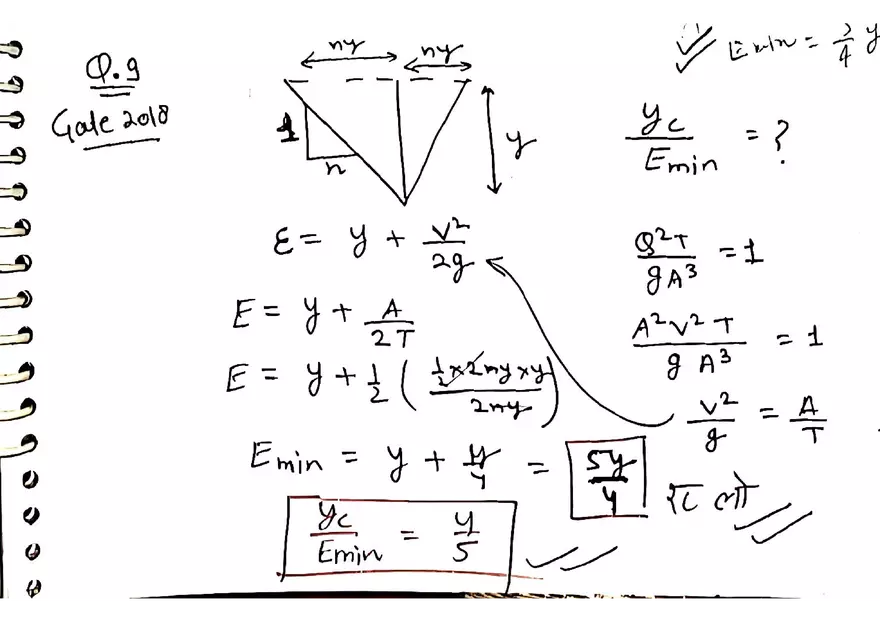 Q.9
Gate 2018
ny ny
1
n
y
Emin = 3/4 y
yc/Emin = ?
E = y + v²/2g
Q²T/gA³ = 1
E = y + A/2T
A²v²T/gA³ = 1
E = y + 1/2 (1/2 × 2ny × y / 2ny)
v²/g = A/T
Emin = y + y/4 = 5y/4
रट लो
yc/Emin = 4/5